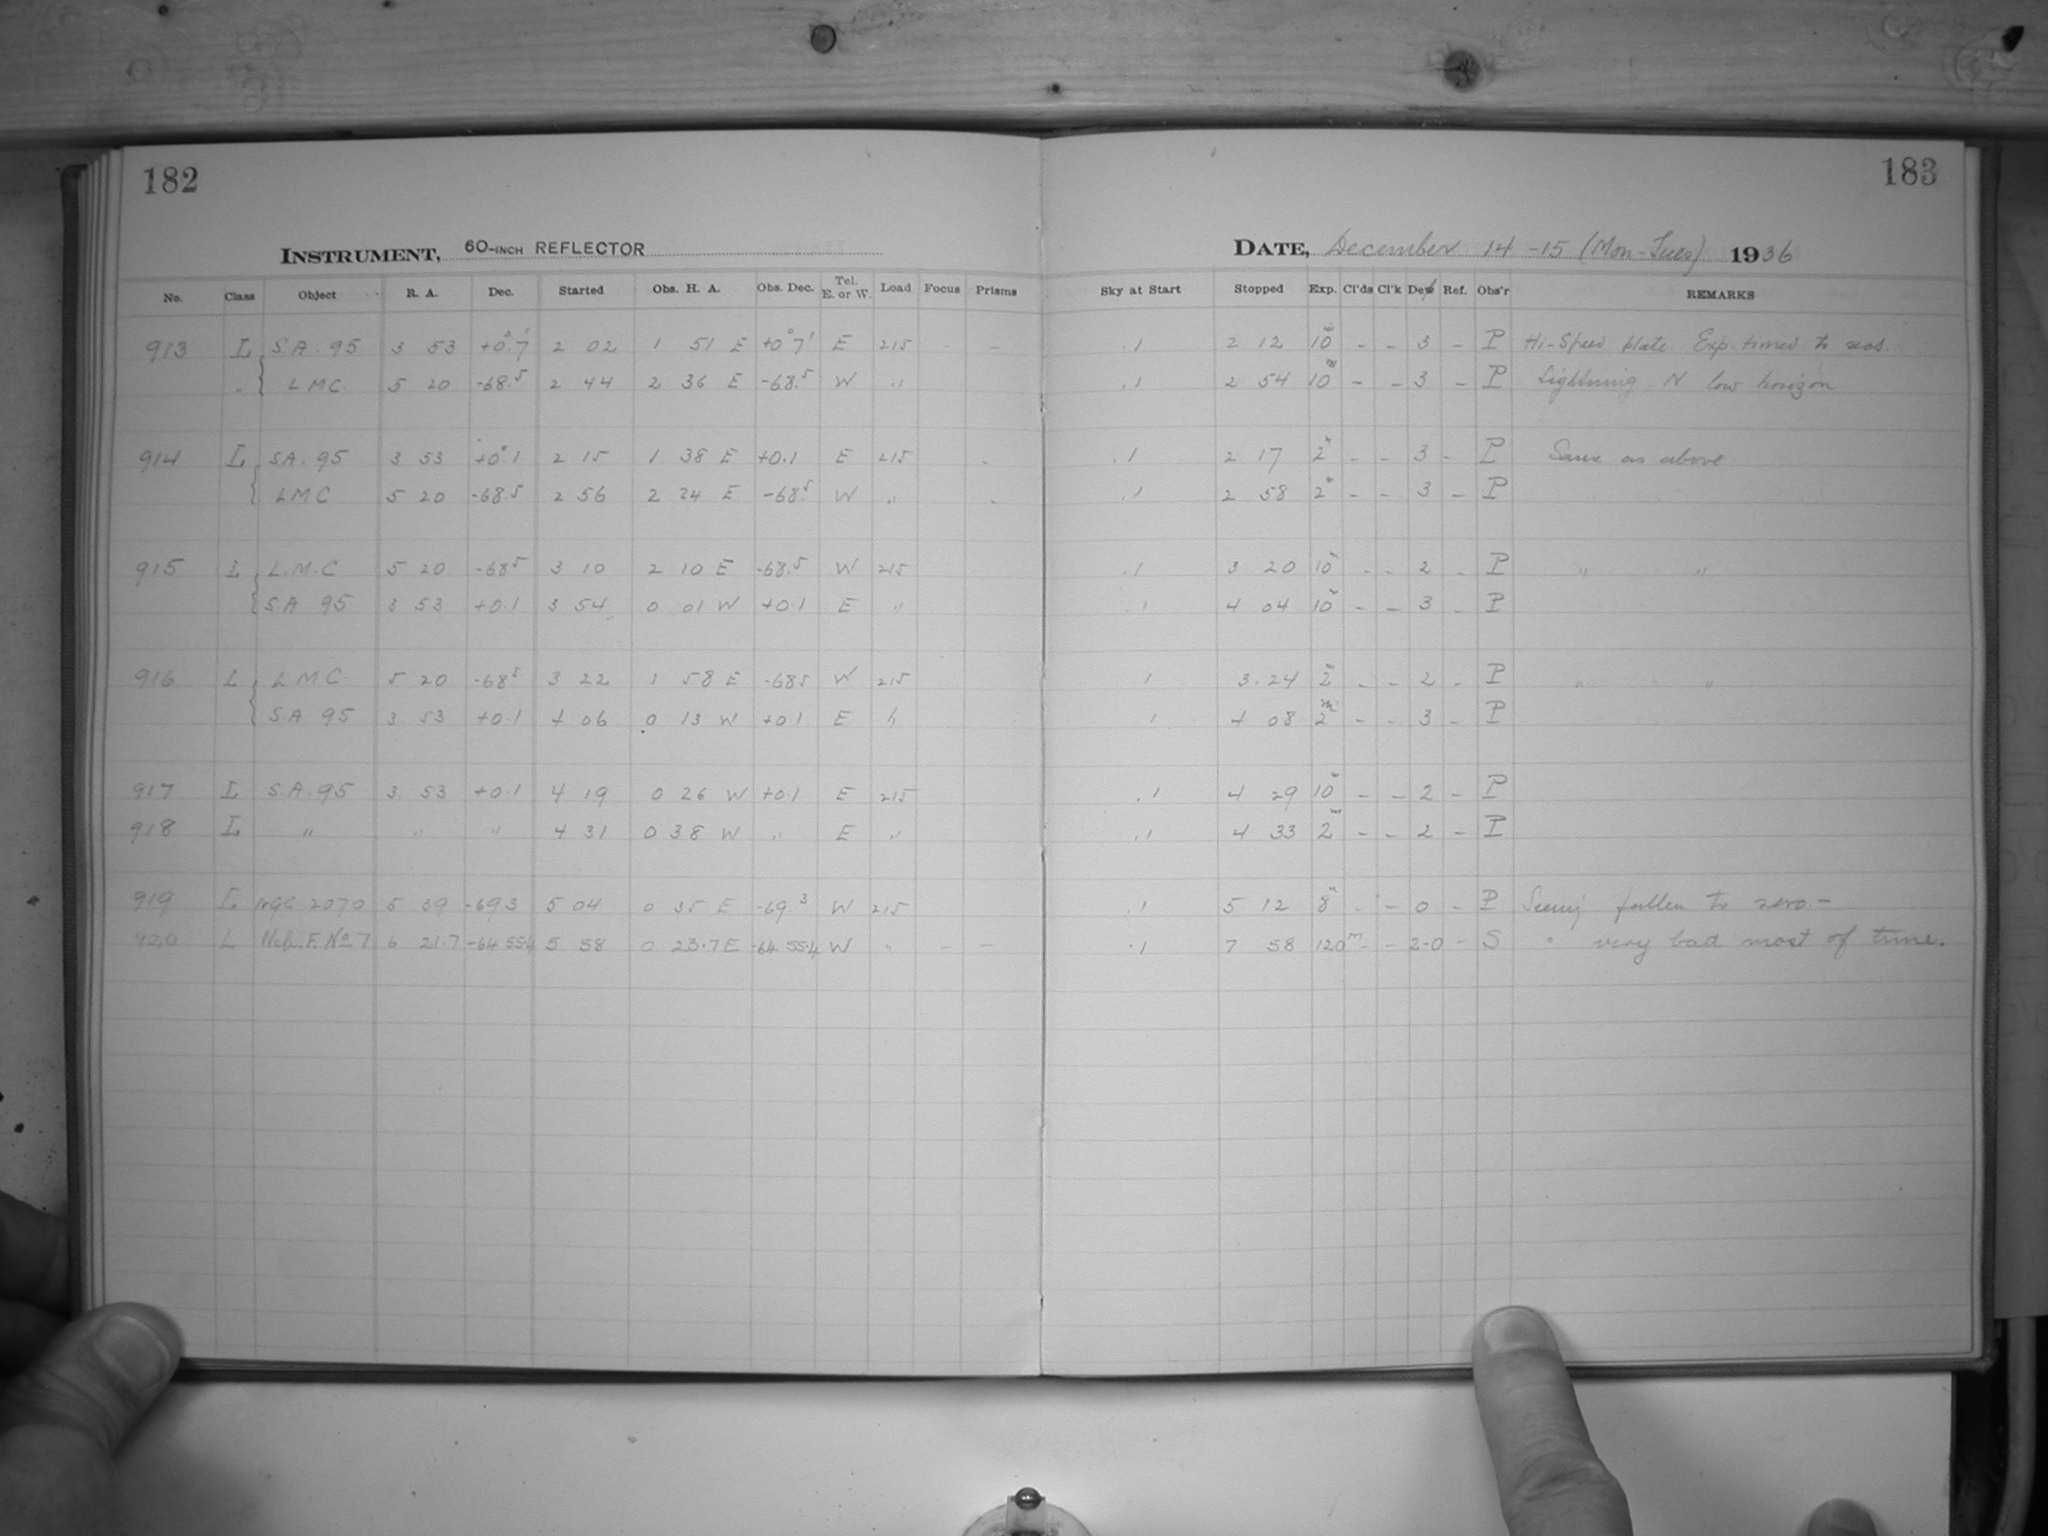 182
183
INSTRUMENT, 60-INCH REFLECTOR
DATE, December 14-15 (Mon-Tues) 1936
No. Class Object R. A. Dec. Started Obs. H. A. Obs. Dec. Tel. E. or W. Load Focus Prisms Sky at Start Stopped Exp. Cl'ds Cl'k Def Ref. Obs'r REMARKS
913 L S.A. 95 3 53 +0°.7' 2 02 1 51 E +0°7' E 215 - - .1 2 12 10m - - 3 - P Hi-Speed plate Exp. times to secs.
" LMC 5 20 -68.5 2 44 2 36 E -68.5 W " .1 2 54 10m - - 3 - P Lightning N low horizon
914 L S.A. 95 3 53 +0°.1 2 15 1 38 E +0.1 E 215 - .1 2 17 2m - - 3 - P Same as above
LMC 5 20 -68.5 2 56 2 24 E -68.5 W " - .1 2 58 2m - - 3 - P
915 L L.M.C 5 20 -68.5 3 10 2 10 E -68.5 W 215 .1 3 20 10m - - 2 - P " "
S.A 95 3 53 +0.1 3 54 0 01 W +0.1 E " .1 4 04 10m - - 3 - P
916 L LMC 5 20 -68.5 3 22 1 58 E -68.5 W 215 .1 3.24 2m - - 2 - P " "
S.A 95 3 53 +0.1 4 06 0 13 W +0.1 E " .1 4 08 2m - - 3 - P
917 L S.A. 95 3 53 +0.1 4 19 0 26 W +0.1 E 215 .1 4 29 10m - - 2 - P
918 L " " " 4 31 0 38 W " E " .1 4 33 2m - - 2 - P
919 L NGC 2070 5 39 -69.3 5 04 0 35 E -69.3 W 215 .1 5 12 8m - - 0 - P Seeing fallen to zero.-
920 L Neb. F. No 7 6 21.7 -64 55.4 5 58 0 23.7 E -64 55.4 W " - - .1 7 58 120m - - 2-0 - S " very bad most of time.